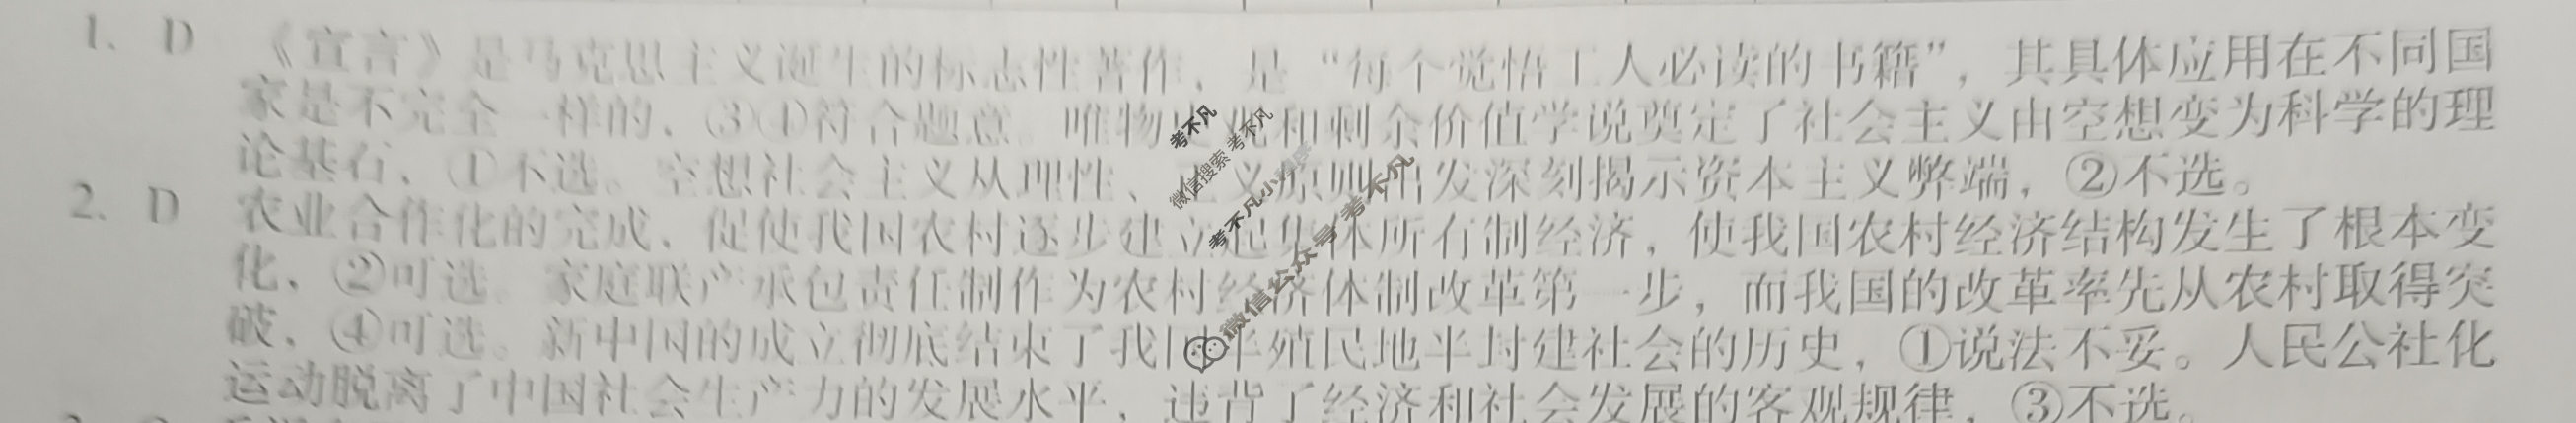 1. D 《宣言》是马克思主义诞生的标志性著作，是“每个觉悟工人必读的书籍”，其具体应用在不同国
家是不完全一样的，③④符合题意。唯物史观和剩余价值学说奠定了社会主义由空想变为科学的理
论基石，①不选。空想社会主义从理性、正义原则出发深刻揭示资本主义弊端，②不选。
2. D 农业合作化的完成，促使我国农村逐步建立起集体所有制经济，使我国农村经济结构发生了根本变
化，②可选。家庭联产承包责任制作为农村经济体制改革第一步，而我国的改革率先从农村取得突
破，④可选。新中国的成立彻底结束了我国半殖民地半封建社会的历史，①说法不妥。人民公社化
运动脱离了中国社会生产力的发展水平，违背了经济和社会发展的客观规律，③不选。
考不凡
微信搜索 考不凡
考不凡小程序
微信公众号 考不凡